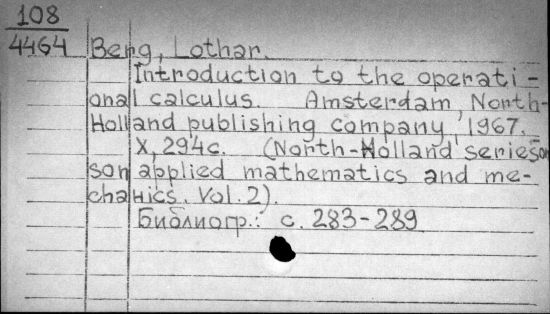 108
4464 Berg, Lothar.
Introduction to the operati-
onal calculus. Amsterdam, North-
Holland publishing company, 1967.
X, 294c. (North-Holland series on
son applied mathematics and me-
chanics. Vol. 2).
Библиогр.: с. 283-289